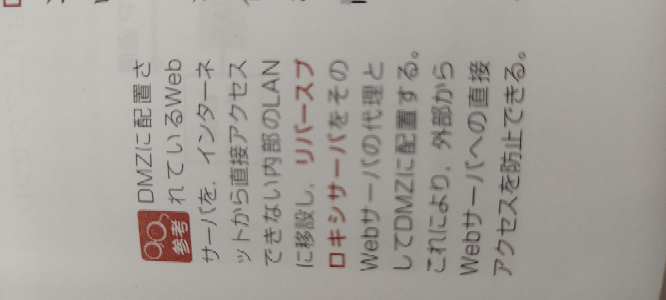 参考
DMZに配置さ
れているWeb
サーバを，インターネ
ットから直接アクセス
できない内部のLAN
に移設し，リバースプ
ロキシサーバをその
Webサーバの代理と
してDMZに配置する。
これにより，外部から
Webサーバへの直接
アクセスを防止できる。